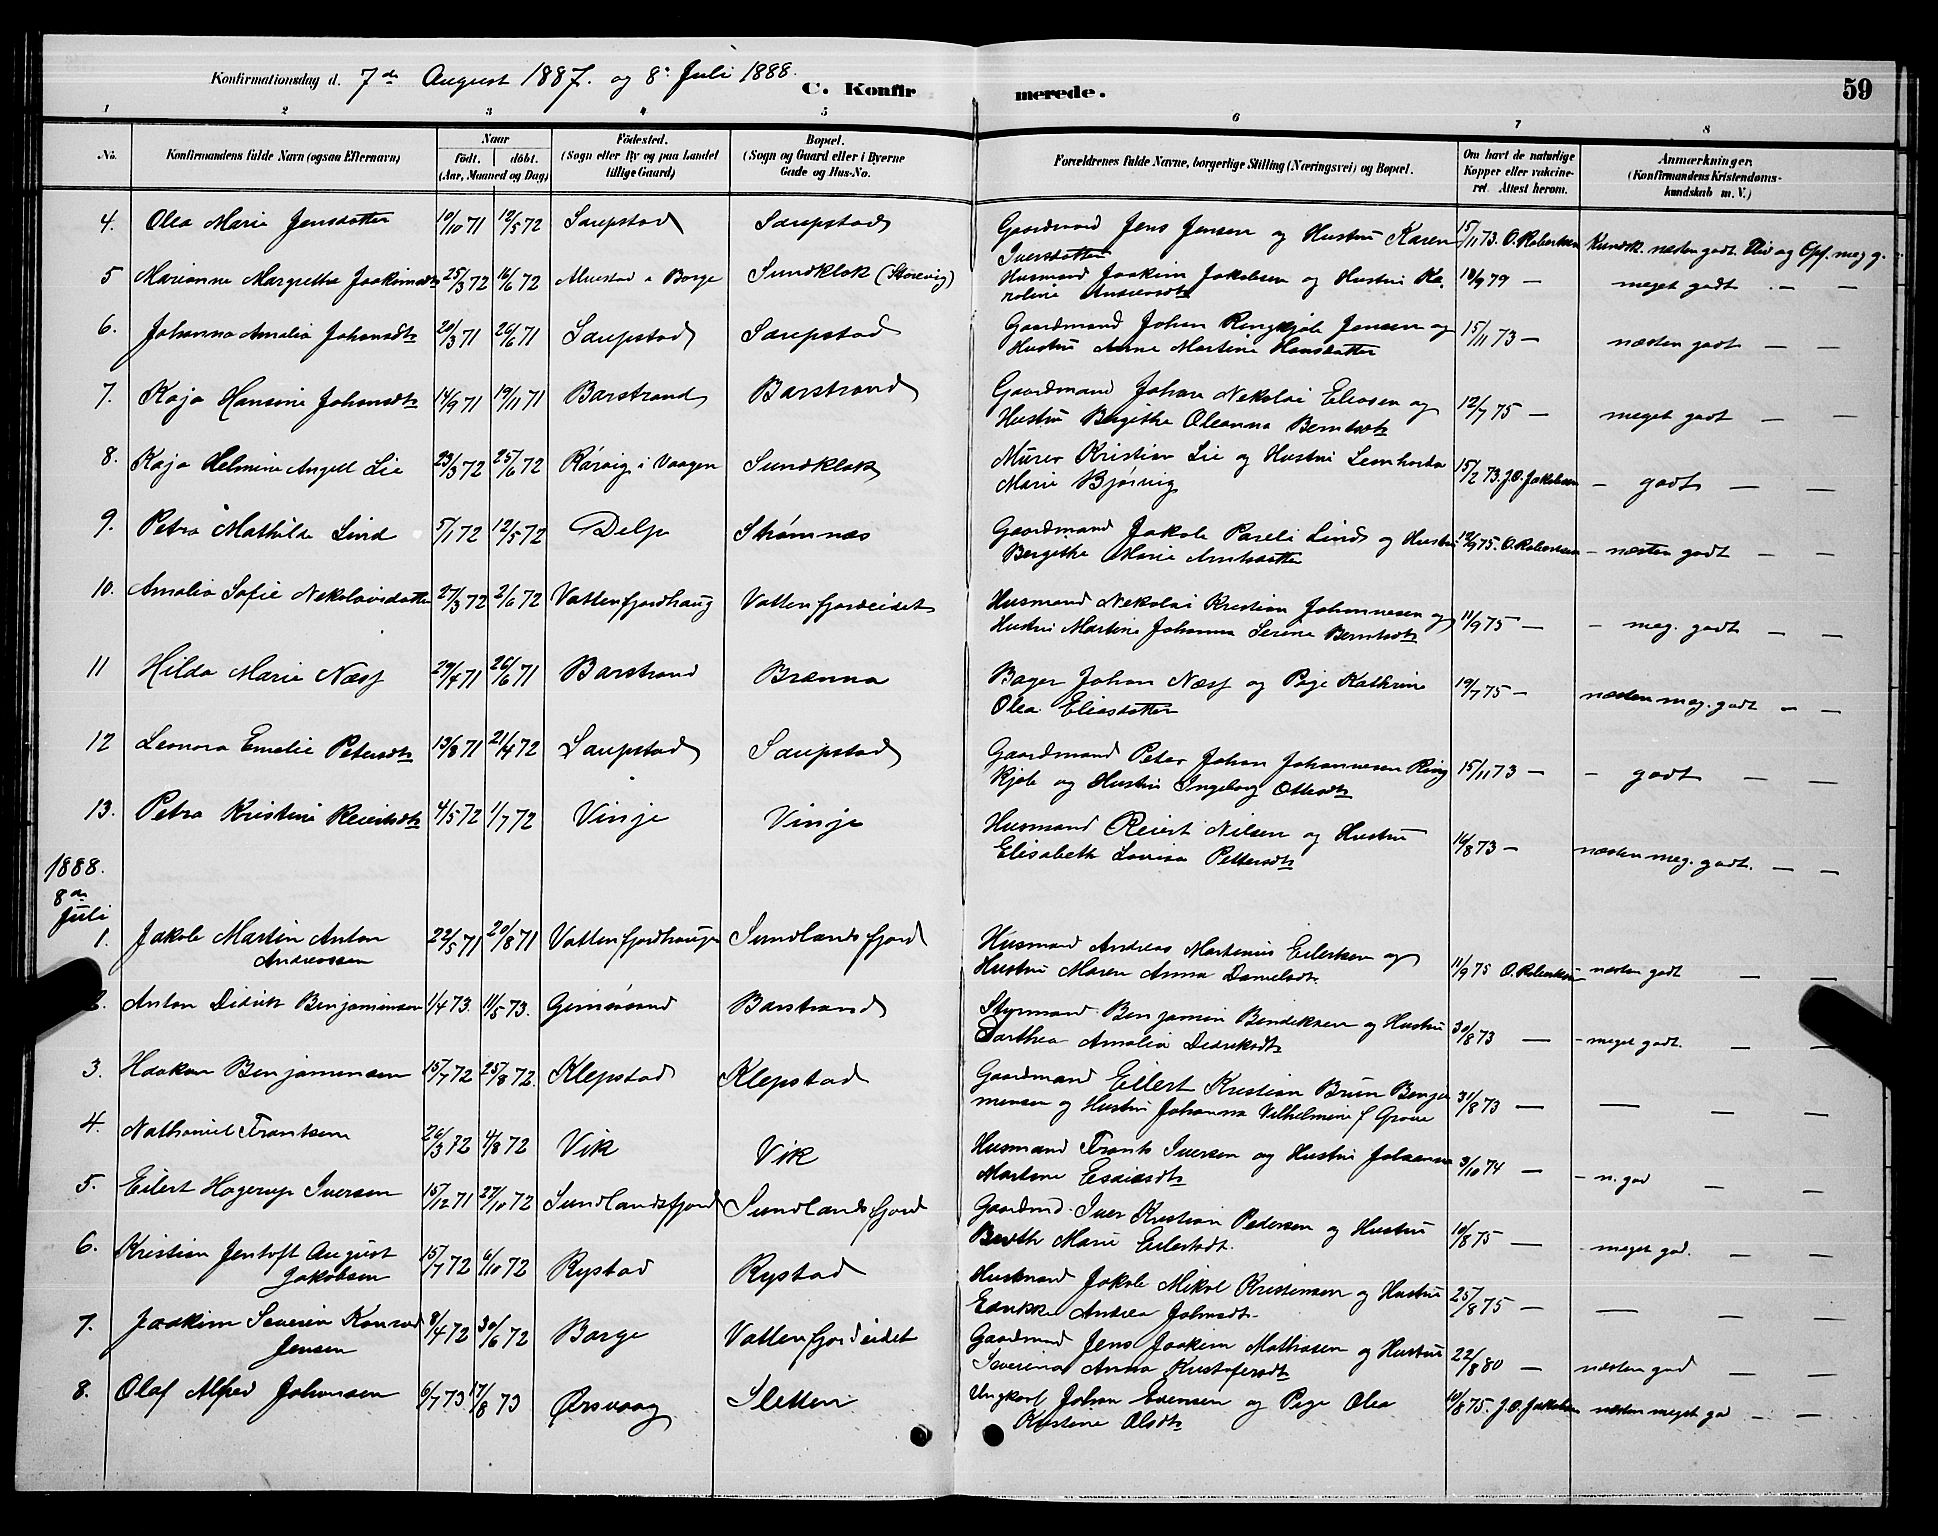 Konfirmationsdag d. 7de August 1887. og 8. Juli 1888.
C. Konfirmerede.
59
1 2 3 4 5 6 7 8
No.
Konfirmandens fulde Navn (ogsaa Efternavn)
Naar
født. | døbt.
(Aar, Maaned og Dag)
Fødested.
(Sogn eller By og paa Landet
tillige Gaard)
Bopæl.
(Sogn og Gaard eller i Byerne
Gade og Hus-No.
Forældrenes fulde Navne, borgerlige Stilling (Næringsvei) og Bopæl.
Om havt de naturlige
Kopper eller vakcine-
ret. Attest herom.
Anmærkninger.
(Konfirmandens Kristendoms-
kundskab m. V.)
4. Olea Marie Jensdatter 10/10 71 12/5 72 Saupstad Saupstad Gaardmand Jens Jensen og Hustru Karen 15/11 73. O. Robertsen Kundsk. næsten godt. Fliv og Opf. meg g.
Iversdatter
5 Marianne Margrethe Joakimsdtr 25/3 72 16/6 72 i Borge Sundklak (Storevig) Husmand Joakim Jakobsen og Hustru Ka- 18/9 79 — meget godt — —
roline Andreasdtr
6. Johanna Amalia Johansdtr 20/3 71 26/6 71 Saupstad Saupstad Gaardmand Johan Ringkjøb Jensen og 15/11 73 — næsten godt — —
Hustru Anne Martine Hansdatter
7. Kaja Hansine Johansdtr 14/9 71 19/11 71 Barstrand Barstrand Gaardmand Johan Nekolai Eliasen og 12/7 75 — meget godt — —
Hustru Bergithe Oleanna Berntsdtr
8. Kaja Helmine Angell Lie 23/3 72 25/6 72 Rørvig i Vaagen Sundklak Murer Kristian Lie og Hustru Leonharda 15/2 73. J.O. Jakobsen — godt — —
Marie Bjørvig
9. Petra Mathilde Lind 5/1 72 12/5 72 Delp Strømnæs Gaardmand Jakob Pareli Lind og Hustru 12/9 75. O. Robertsen — næsten godt — —
Bergithe Marie Arntsdatter
10. Amalia Sofie Nekolaisdatter 27/3 72 2/6 72 Vattenfjordhaug Vattenfjordeidet Husmand Nekolai Kristian Johannesen og 11/9 75 — — meg. godt — —
Hustru Martine Johanna Serena Berntsdtr
11 Hilda Marie Næss 29/4 71 26/6 71 Barstrand Brenna Bager Johan Næss og Pige Kathrine 19/7 75 — næsten meg. godt — —
Olea Eliasdatter
12 Leonora Emelie Petersdtr 13/8 71 21/4 72 Saupstad Saupstad Gaardmand Peter Johan Johannesen Ring 15/11 73 — — godt — —
kjøb og Hustru Ingeborg Ottesdtr
13. Petra Kristine Reiertsdtr 4/5 72 1/7 72 Vinje Vinje Husmand Reiert Nilsen og Hustru 16/8 73 — næsten meg. godt. — —
Elisabeth Lovisa Pettersdtr
1888.
8de
Juli
1. Jakob Martin Anton 22/5 71 20/8 71 Vattenfjordhaugen Sundlandsfjord Husmand Andreas Martinus Eilertsen og 11/9 75 O. Robertsen — næsten godt — —
Andreassen Hustru Maren Anna Danielsdtr.
2. Anton Didrik Benjaminsen 1/4 73. 11/5 73. Gimsøsand Barstrand Styrmand Benjamin Bendiksen og Hustru 30/8 73 — — meget godt. — —
Darthea Amalia Didriksdtr
3. Haakon Benjaminsen 15/7 72 25/8 72. Klepstad Klepstad Gaardmand Eilert Kristian Brun Benja 31/8 73 — — — —
minsen og Hustru Johanna Vilhelmine f. Grove
4. Nathaniel Frantsen 26/3 72 4/8 72 Vik Vik Husmand Frants Iversen og Hustru Johanna 3/10 74 — — n. god — —
Martene Esaiasdtr
5. Eilert Hagerup Iversen 15/12 71 27/10 72 Sundlandsfjord Sundlandsfjord Gaardmd. Iver Kristian Pedersen og Hustru 10/8 75 — — —
Berth Marie Eilertsdtr.
6. Kristian Jentoft August 15/7 72 6/10 72 Rystad Rystad Husmand Jakob Mikal Kristensen og Hustru 25/8 75 — — meget god. — —
Jakobsen Andrea Johnsdtr.
7. Joakim Severin Konrad 8/4 72 30/6 72 Borge Vattenfjordeidet Gaardmand Jens Joakim Mathisen og Hustru 22/8 80 — næsten god — —
Jensen Severina Anna Kristofersdtr
8. Olaf Alfred Johansen 6/7 73. 17/8 73 Ørsvaag Sletten Ungkarl Johan Evensen og Pige Olea 10/8 75. J.O. Jakobsen næsten meget god — —
Kristine Olsdtr